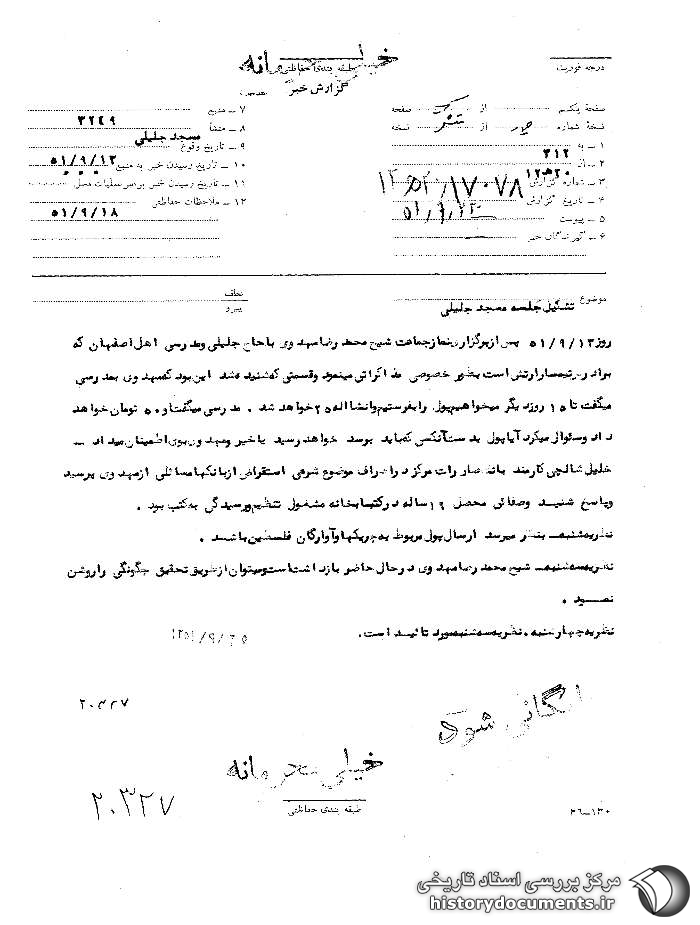 خیلی محرمانه
طبقه بندی حفاظتی
گزارش خبر
درجه فوریت
صفحه یکم از یک صفحه
نسخه شماره از نسخه
۱ – به ۳۱۲
۲ – از ۱۲ ه‍ ۲۰
۳ – شماره گزارش ۱۷۰۷۸ / ۲۰ ه‍ ۱۲
۴ – تاریخ گزارش ۵۱/۹/۲۲
۵ – پیوست
۶ – گیرندگان خبر
۷ – منبع ۳۲۴۹
۸ – منشأ مسجد جلیلی
۹ – تاریخ وقوع
۱۰ – تاریخ رسیدن خبر به منبع ۵۱/۹/۱۳
۱۱ – تاریخ رسیدن خبر برهبر عملیات محل
۱۲ – ملاحظات حفاظتی ۵۱/۹/۱۸
موضوع تشکیل جلسه مسجد جلیلی
عطف
پیرو
روز ۵۱/۹/۱۳ پس از برگزاری نماز جماعت شیخ محمد رضا مهدوی با حاج جلیلی و مدرسی اهل اصفهان که
برادر سرتیپ سار ارتش است بطور خصوصی مذاکراتی مینمود و قسمتی که شنیده شد این بود که مهدوی بمدرسی
میگفت تا ۱۵ روز دیگر میخواهیم پول را بفرستیم وانشااله ۲۵ خواهد شد . مدرسی میگفت او ۵۰ تومان خواهد
داد و سئوال میکرد آیا پول بدست آنکسی که باید برسد خواهد رسید یا خیر و مهدوی بوی اطمینان میداد –
خلیل شالچی کارمند بانک صادرات مرکز در اطراف موضوع شرعی استقراض از بانکها مسائلی از مهدوی پرسید
و پاسخ شنید وصفائی محصل ۱۶ ساله در کتابخانه مشغول تنظیم و رسیدگی به کتب بود .
نظریه شنبه – بنظر میرسد ارسال پول مربوط به چریکها و آوارگان فلسطین باشد .
نظریه سه شنبه – شیخ محمد رضا مهدوی در حال حاضر بازداشت است و میتوان از طریق تحقیق چگونگی را روشن
نمود .
نظریه چهارشنبه . نظریه سه شنبه مورد تائید است .
۱۳۵۱/۹/۲۵
بایگانی شود
۲۰۳۲۷
خیلی محرمانه
طبقه بندی حفاظتی
۲۰۳۲۷
۳۶–۱۳۰
مرکز بررسی اسناد تاریخی
historydocuments.ir